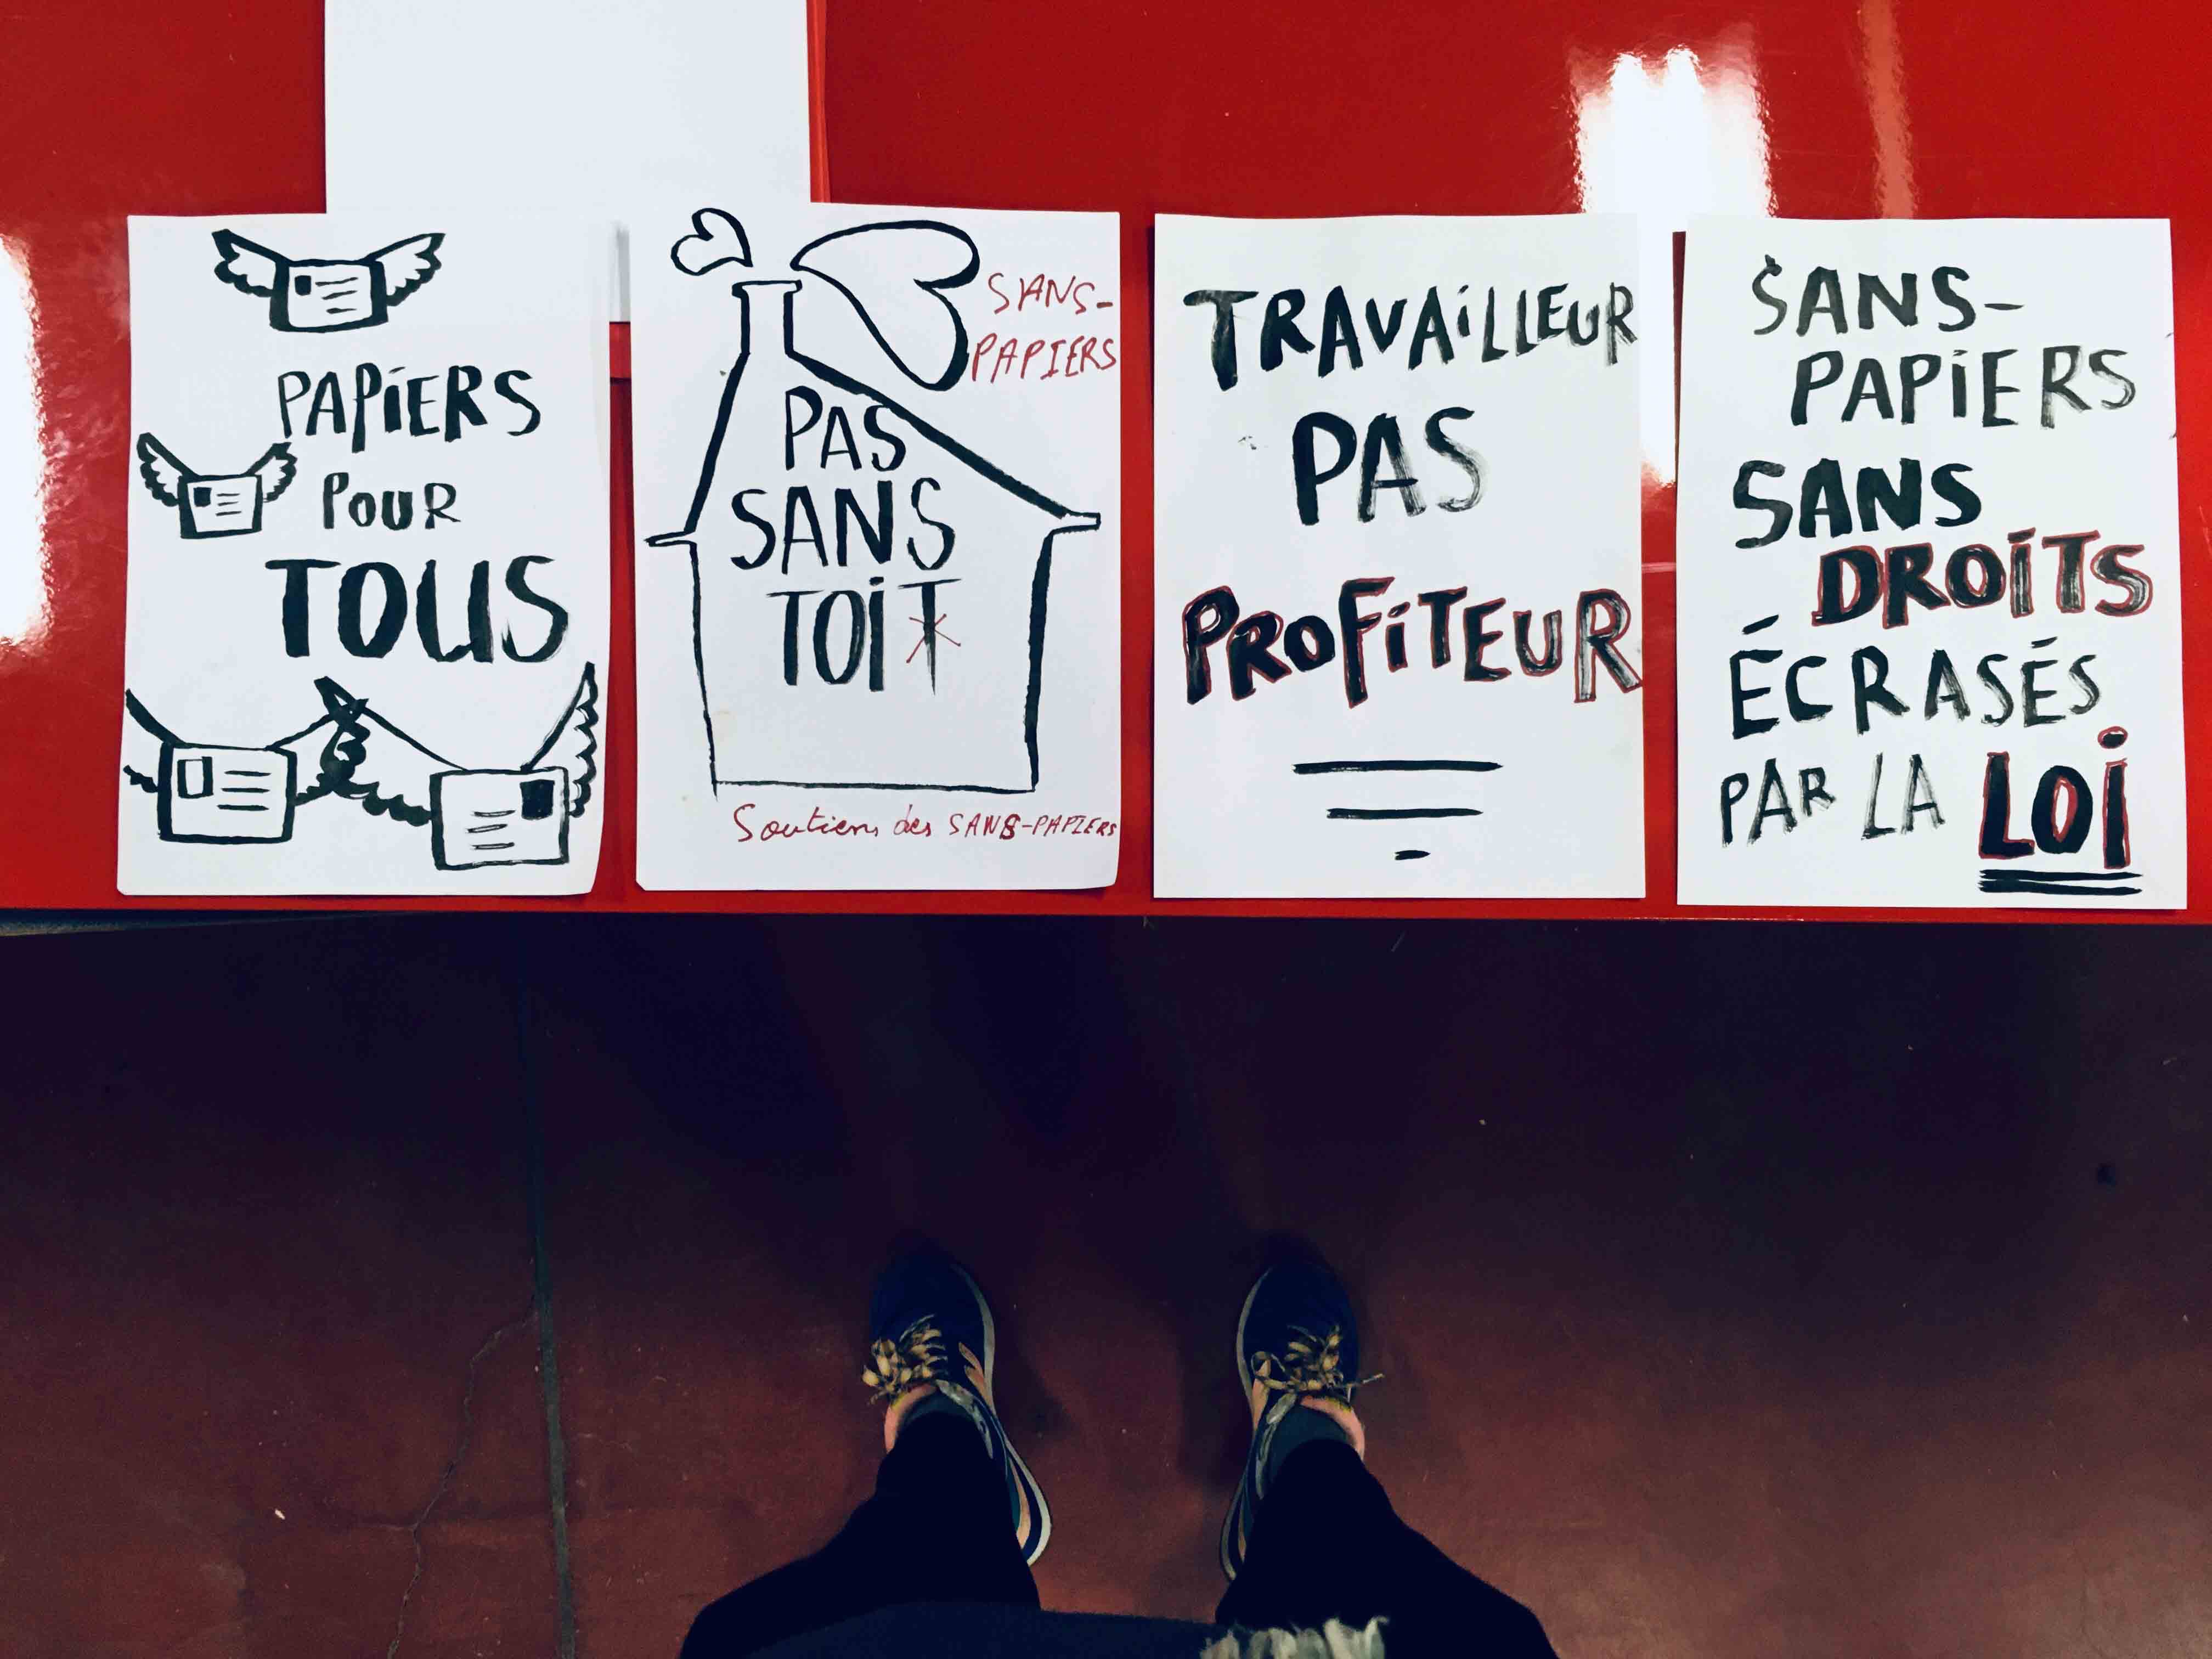 PAPIERS
POUR
TOUS
SANS-
PAPIERS
PAS
SANS
TOIT
Soutiens des SANS-PAPIERS
TRAVAILLEUR
PAS
PROFITEUR
SANS-
PAPIERS
SANS
DROITS
ÉCRASÉS
PAR LA LOI